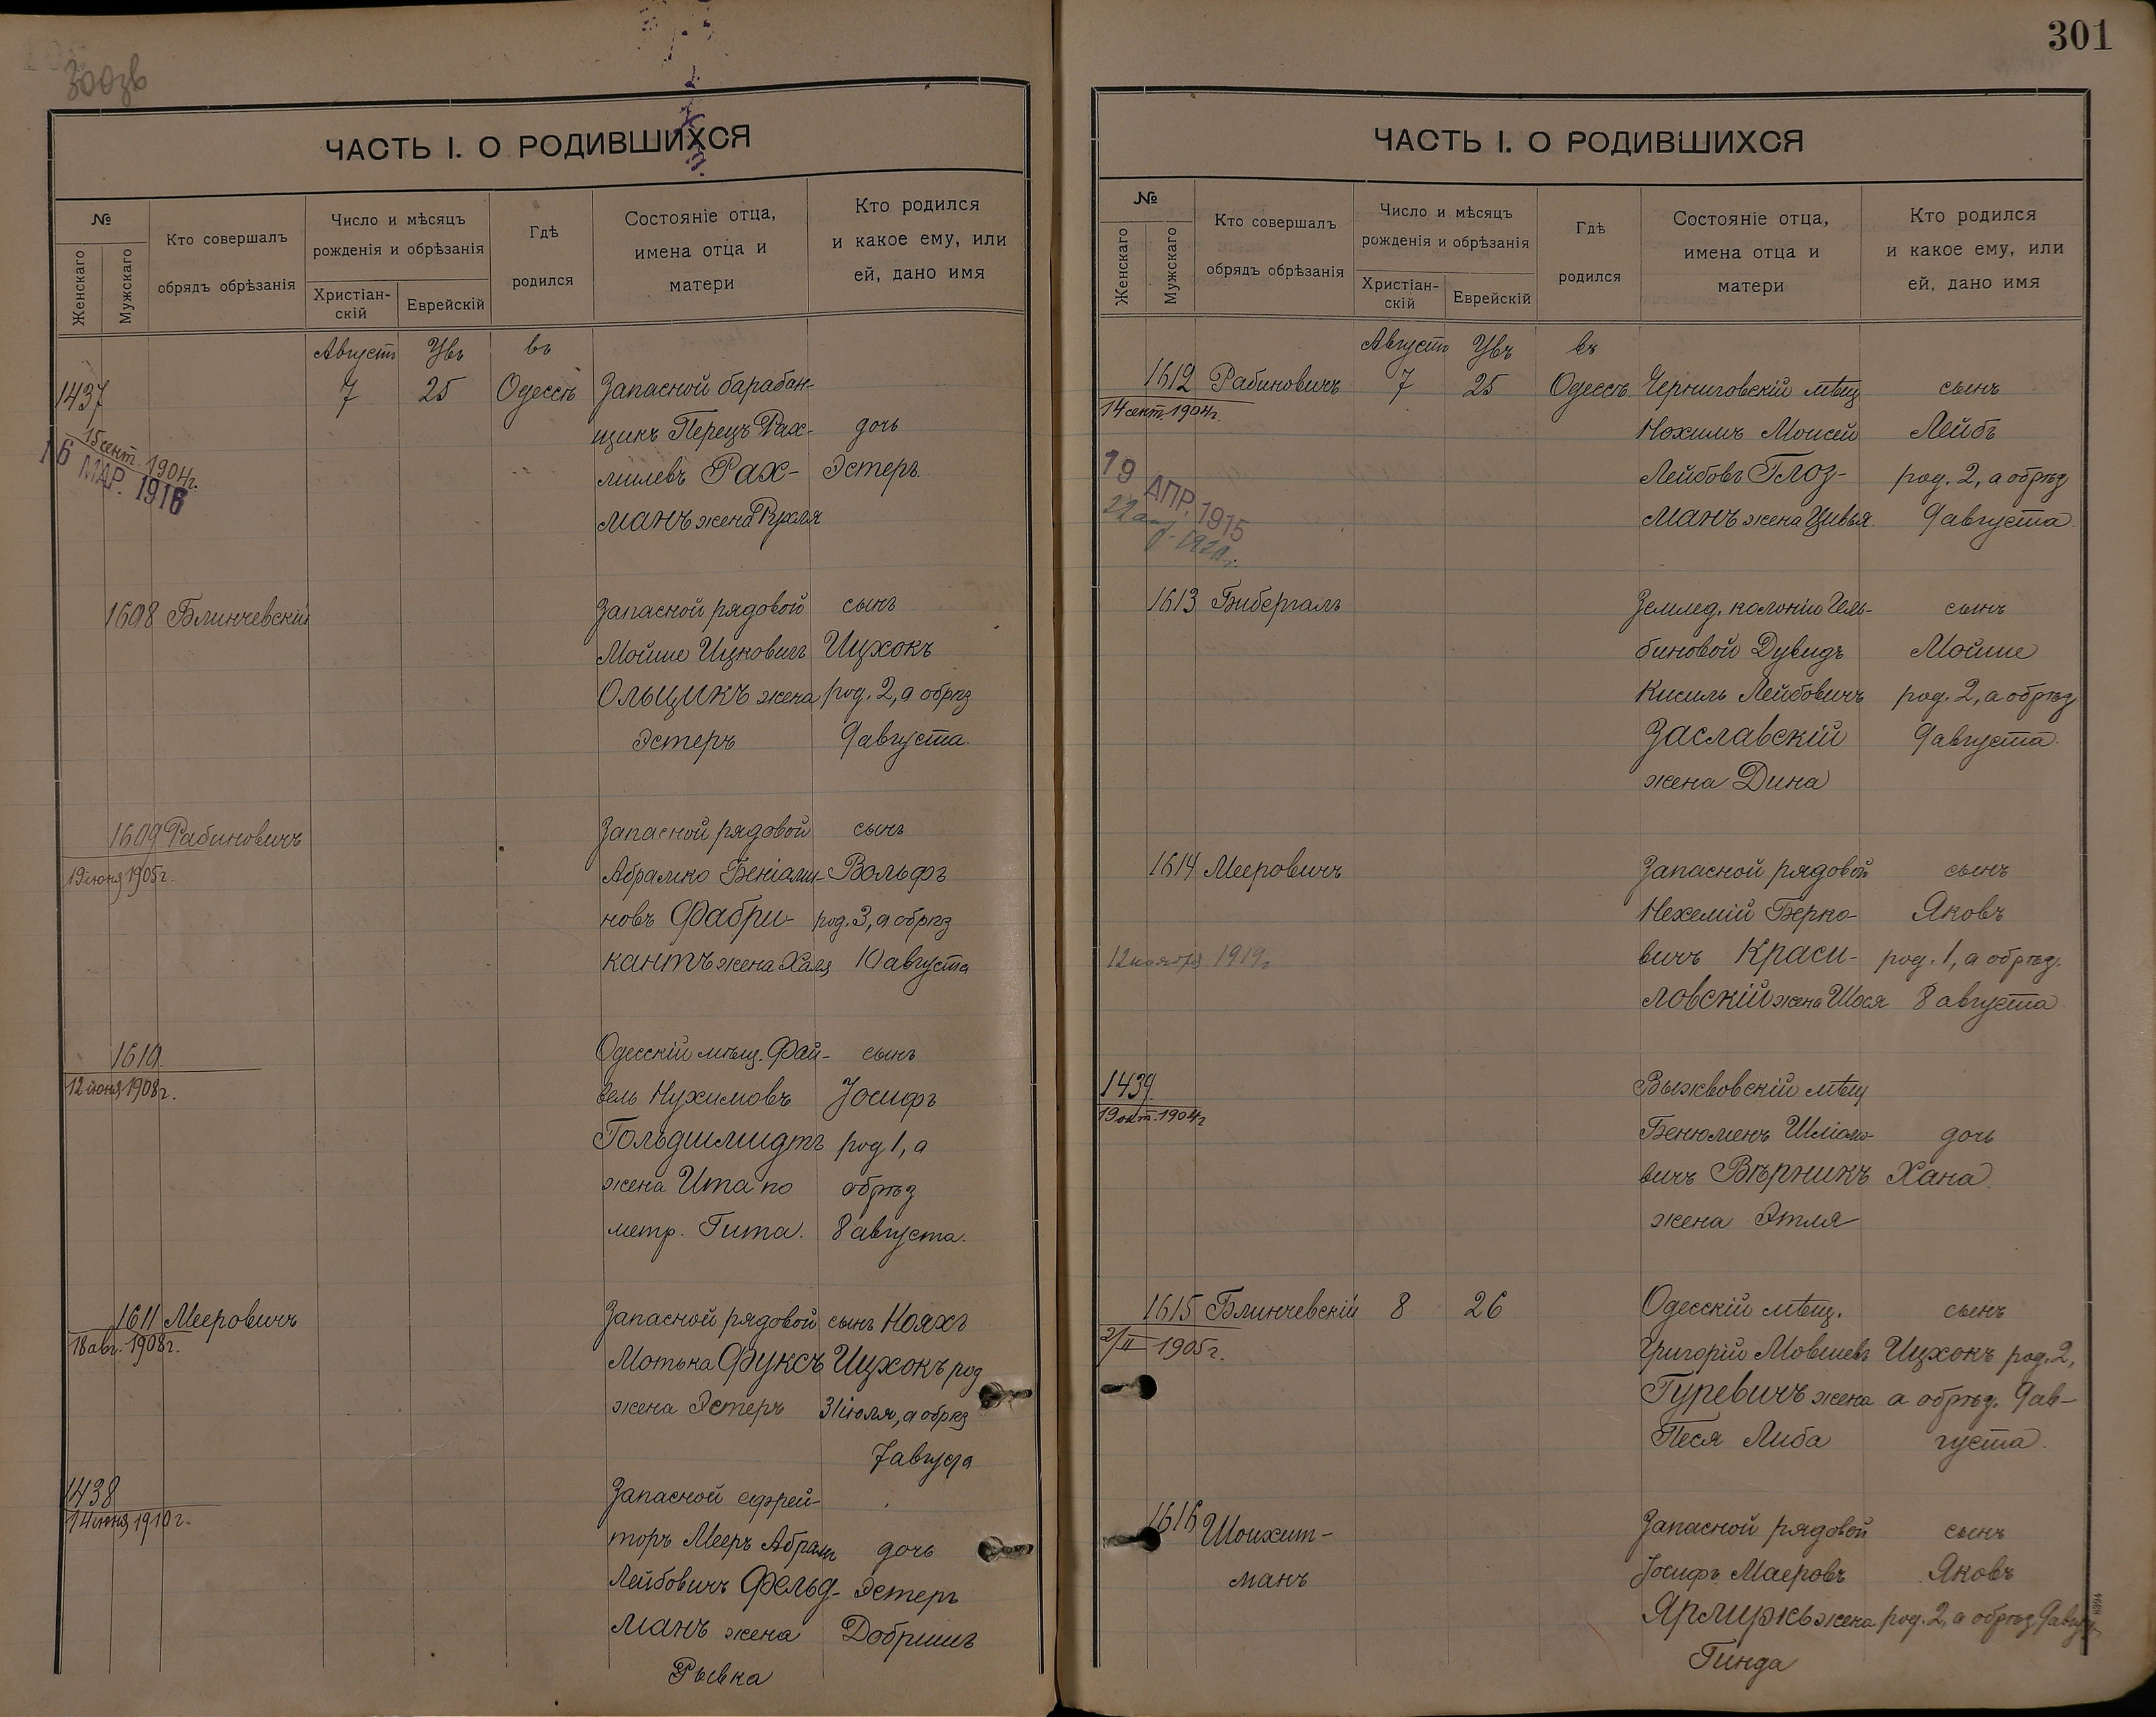 300зв
ЧАСТЬ I. О РОДИВШИХСЯ
№
Женскаго
Мужскаго
Кто совершалъ
обрядъ обрѣзанія
Число и мѣсяцъ
рожденія и обрѣзанія
Христіан-
скій
Еврейскій
Гдѣ
родился
Состояніе отца,
имена отца и
матери
Кто родился
и какое ему, или
ей, дано имя
Августъ Увъ въ
1437 7 25 Одессѣ Запасной барабан-
щикъ Перецъ Рах- дочь
15 сент. 1904г.
16 МАР. 1916
милевъ Рах- Эстеръ
манъ жена Рухля
1608 Блинчевскій Запасной рядовой сынъ
Мойше Ицковичъ Ицхокъ
Ольщикъ жена род. 2, а обрѣз
Эстеръ 9 августа.
1609 Рабиновичъ Запасной рядовой сынъ
19 июня 1905г. Абрамко Беніами- Вольфъ
новъ Фабри- род. 3, а обрѣз
кантъ жена Хая 10 августа
1610 Одесскій мѣщ. Фай- сынъ
12 июня 1908г. вель Нухимовъ Іосифъ
Гольдшмидтъ род 1, а
жена Ита по обрѣз
метр. Гита. 8 августа.
1611 Мееровичъ Запасной рядовой сынъ Нояхъ
18 авг. 1908г. Мотька Фуксъ Ицхокъ род
жена Эстеръ 31 іюля, а обрѣз
7 августа
1438 Запасной ефрей-
14 июня 1910г. торъ Мееръ Абрамъ дочь
Лейбовичъ Фельд- Эстеръ
манъ жена Добришъ
Рывка
301
ЧАСТЬ I. О РОДИВШИХСЯ
№
Женскаго
Мужскаго
Кто совершалъ
обрядъ обрѣзанія
Число и мѣсяцъ
рожденія и обрѣзанія
Христіан-
скій
Еврейскій
Гдѣ
родился
Состояніе отца,
имена отца и
матери
Кто родился
и какое ему, или
ей, дано имя
Августъ Увъ въ
1612 Рабиновичъ 7 25 Одессѣ. Черниговскій мѣщ сынъ
14 сент. 1904г.
Нохимъ Моисей Лейбъ
19 АПР. 1915
Лейбовъ Глоз- род. 2, а обрѣз
манъ жена Цивья 9 августа
1613 Бибергалъ Землед. колоніи Гель- сынъ
биновой Дувидъ Мойше
Кисиль Лейбовичъ род. 2, а обрѣз
Заславскій 9 августа.
жена Дина
1614 Мееровичъ Запасной рядовой сынъ
Нехемій Берко- Яковъ
12 ноября 1919г вичъ Краси- род. 1, а обрѣз.
ловскій жена Шося 8 августа
1439 Выжвовскій мѣщ
19 окт. 1904г Бенюменъ Шліомо- дочь
вичъ Вѣрникъ Хана.
жена Этля
1615 Блинчевскій 8 26 Одесскій мѣщ. сынъ
2/II 1905г. Григорій Мовшевъ Ицхокъ род. 2,
Гуревичъ жена а обрѣз. 9 ав-
Песя Либа густа.
1616 Шоихит- Запасной рядовой сынъ
манъ Іосифъ Маеровъ Яковъ
жена род. 2, а обрѣз 9 авгу
Гинда